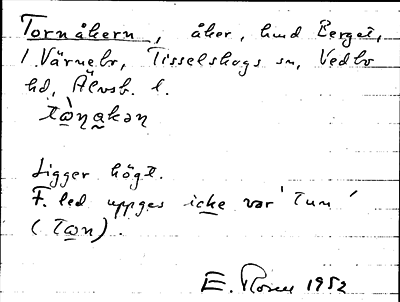 Tornåkern, åker, hmd Berget,
1 Värnebr, Tisselskogs sn, Vedbo
hd, Älvsb. l.
Ligger högt.
F. led uppges icke var 'Tun'
1952